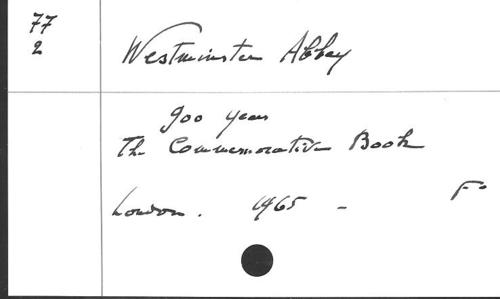 77
2
Westminster Abbey
900 years
The Commemorative Book
London. 1965 - Fo